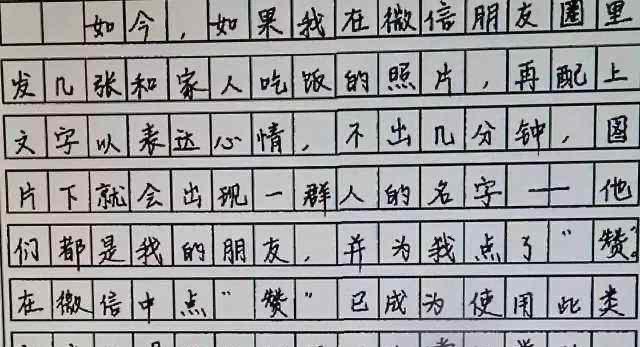 如今，如果我在微信朋友圈里
发几张和家人吃饭的照片，再配上
文字以表达心情，不出几分钟，图
片下就会出现一群人的名字——他
们都是我的朋友，并为我点了“赞”。
在微信中点“赞”已成为使用此类